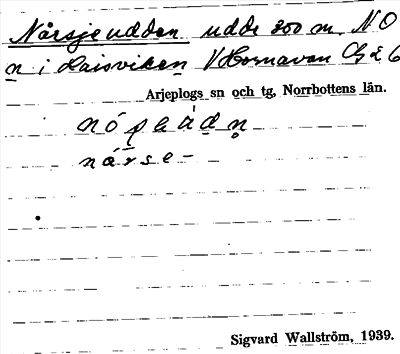 Nårsjeudden udde 300 m NO
n i Laisviken V Hornavan
Arjeplogs sn och tg, Norrbottens län.
nárse-
Sigvard Wallström, 1939.